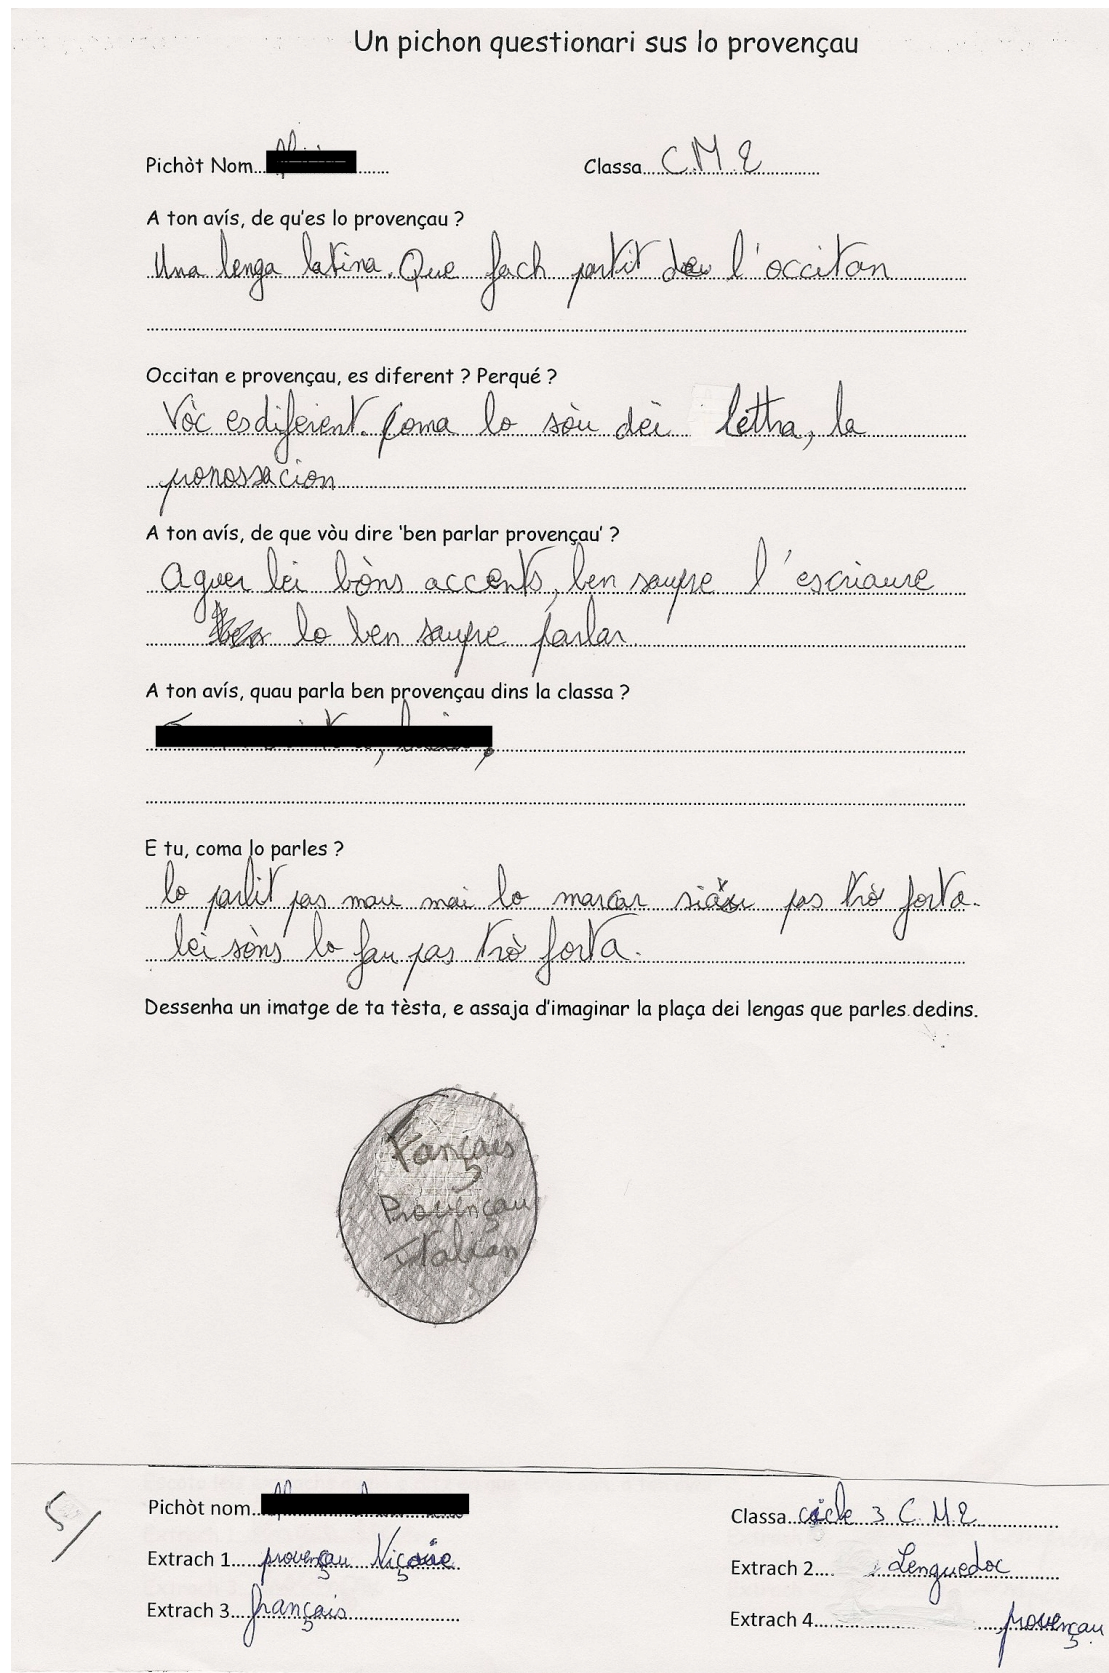 Un pichon questionari sus lo provençau
Pichòt Nom
Classa C.M 2
A ton avís, de qu'es lo provençau ?
Una lenga latina. Que fach partit de l'occitan
Occitan e provençau, es diferent ? Perqué ?
Vòc es diferent. Coma lo sòu dèi lettra, la
pronossacion
A ton avís, de que vòu dire 'ben parlar provençau' ?
Aguer lei bòns accents, ben saupre l'escriaure
lo ben saupre parlar.
A ton avís, quau parla ben provençau dins la classa ?
E tu, coma lo parles ?
lo parlit pas mau mai lo marcar siáu pas trò forta.
lei sòns lo fau pas trò forta.
Dessenha un imatge de ta tèsta, e assaja d'imaginar la plaça dei lengas que parles dedins.
Fançais
Provençau
Italian
5/
Pichòt nom
Classa cicle 3 C.M.2
Extrach 1 provençau Niçoíe
Extrach 2 Lenguedoc
Extrach 3 français
Extrach 4 provençau